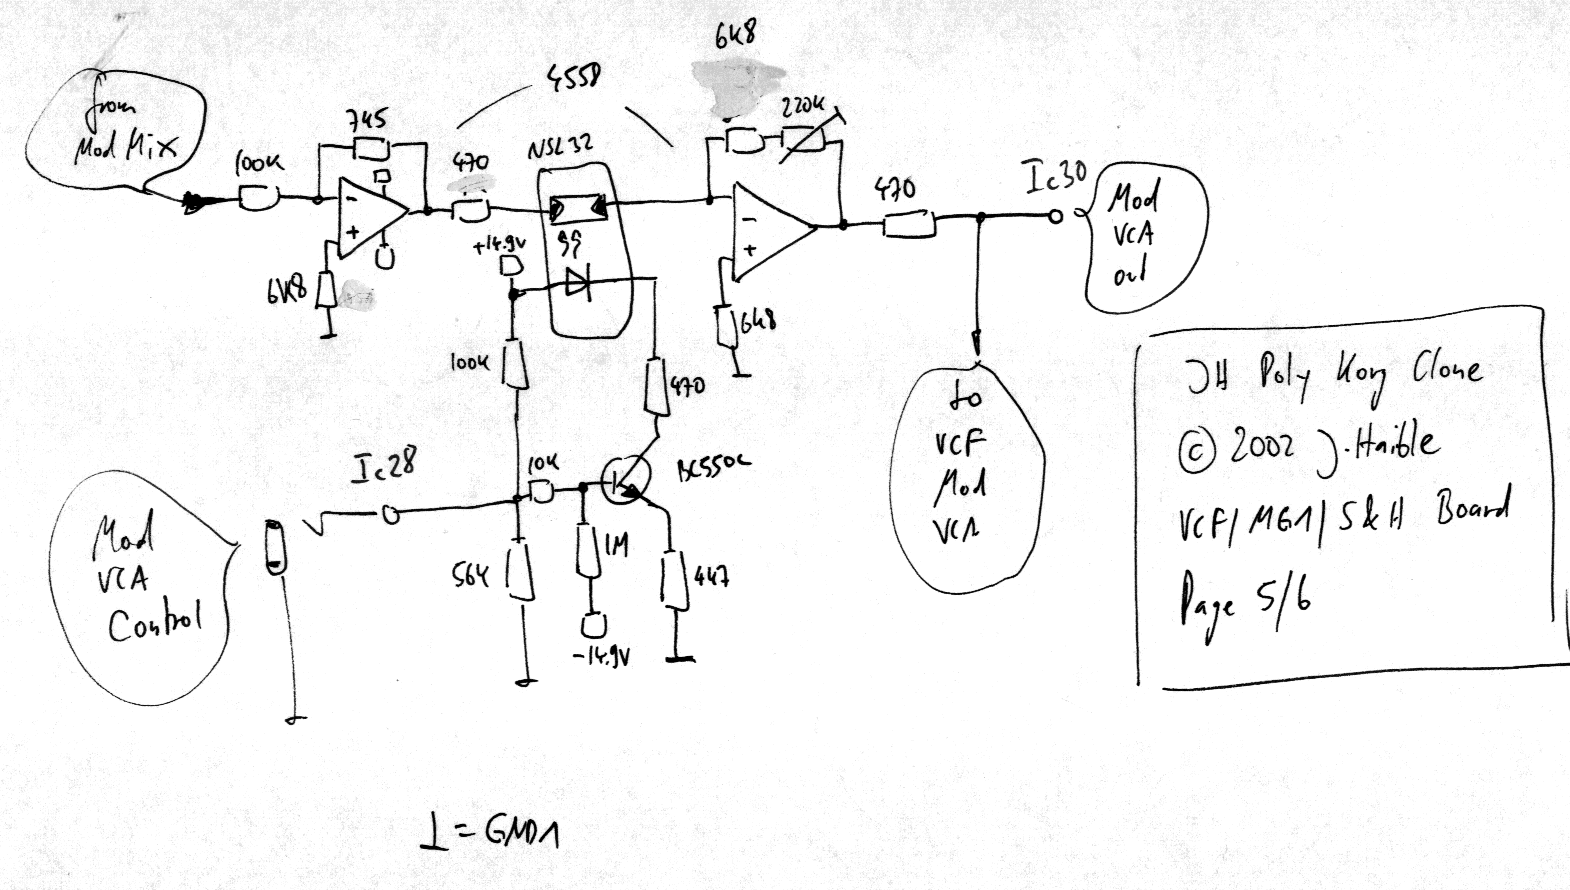 from
Mod Mix
100K
7k5
6k8
4558
470
NSL32
+14.9V
6k8
220K
6k8
470
Ic30
Mod
VCA
out
to
VCF
Mod
VCA
100K
470
Ic28
10K
BC550C
Mod
VCA
Control
56k
1M
-14.9V
4k7
JH Poly Korg Clone
© 2002 J. Haible
VCF/MG1/S&H Board
Page 5/6
⊥ = GND1